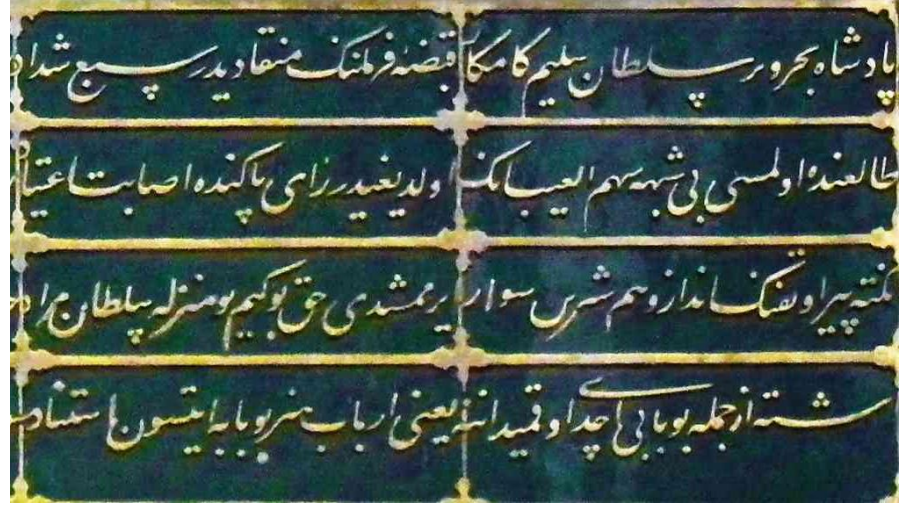 پادشاه بحر و بر سلطان سلیم كامكار
قبضهٔ فرمانك منقادیدر سبع شداد
طالعنده اولمسی بی شبهه سهم الغیب انك
اولدیغیدر رای پاكنده اصابت اعتیاد
نكته پیرا و تفنك انداز و هم شیرین سوار
ایرممشدی حق بو كیم بو منزله سلطان مراد
از جمله بو بابی آچدی اوقمیداننه
یعنی ارباب هنر بو بابه ایتسون استناد